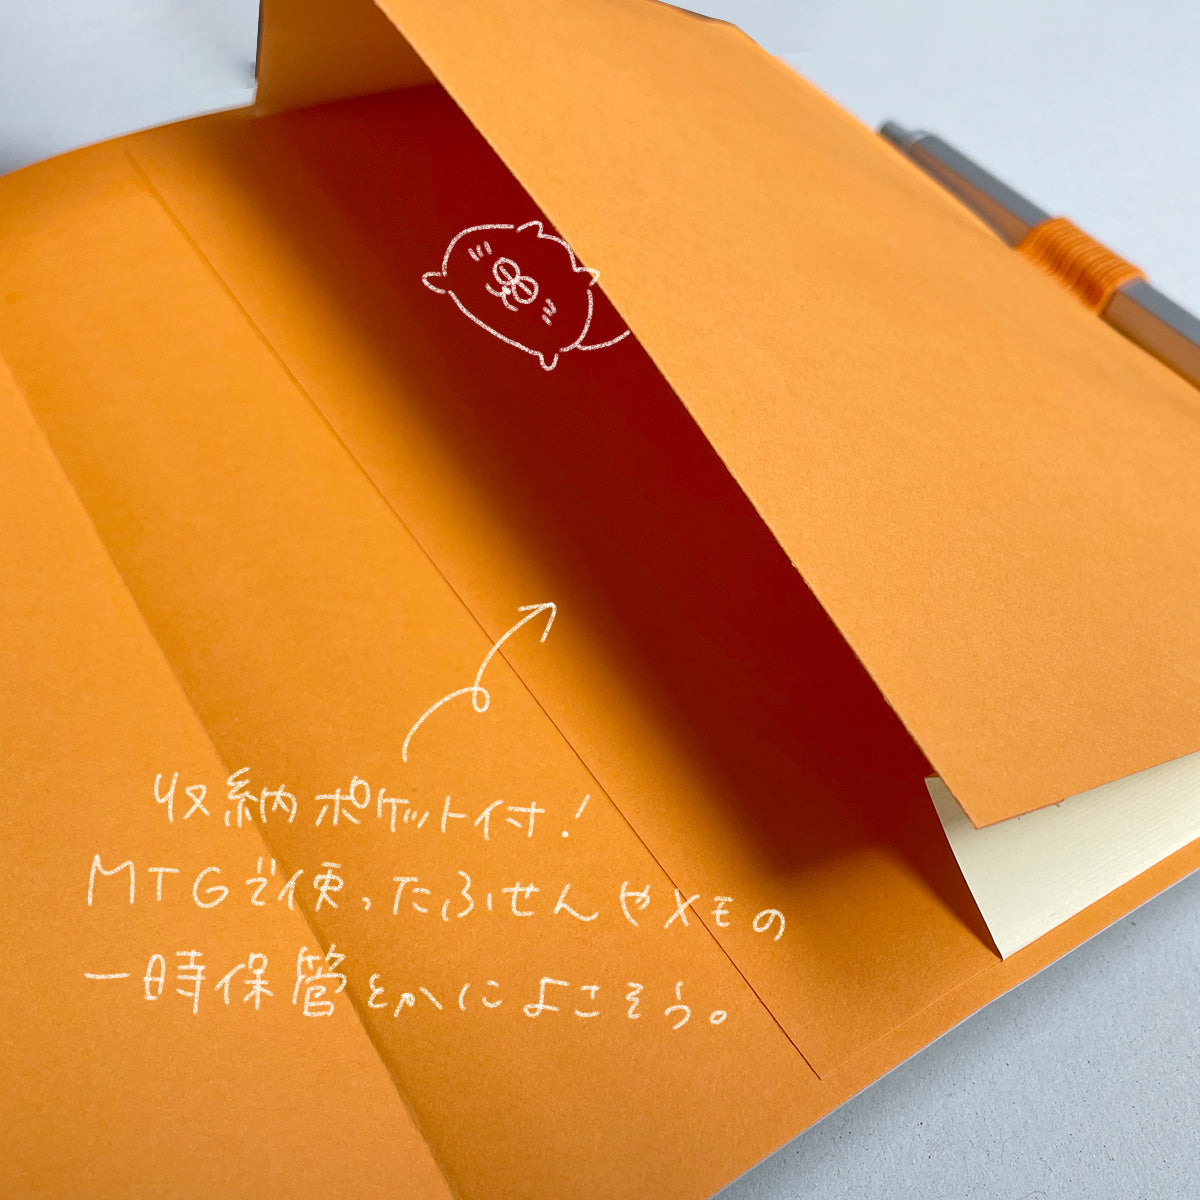 収納ポケット付!
MTGで使ったふせんやメモの
一時保管とかによさそう。